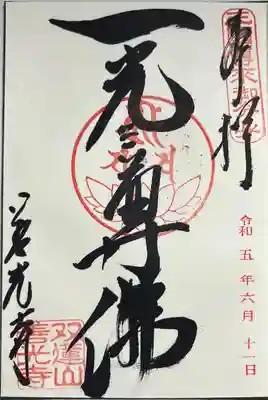 奉拝
令和五年六月十一日
一光三尊佛
善光寺
双蓮山
善光寺